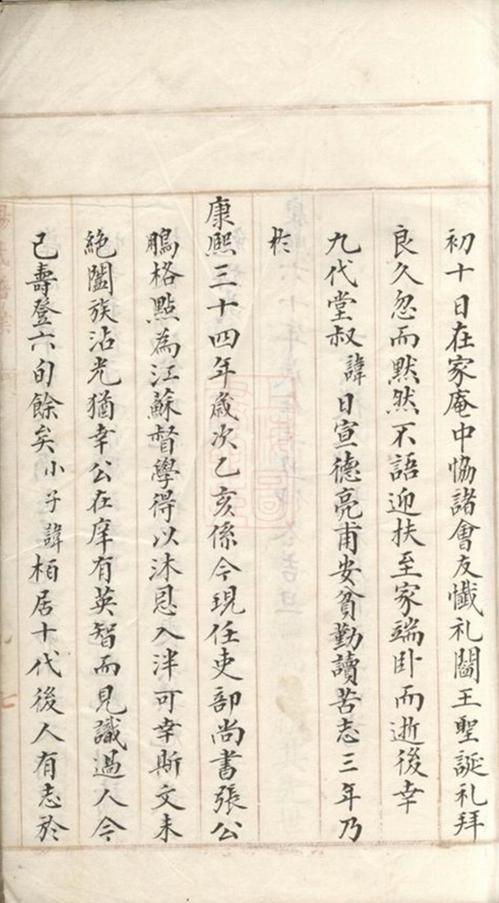 初十日在家庵中恊諸會友懴礼閻王聖誕礼拜
良久忽而默然不語迎扶至家端卧而逝後幸
九代堂叔諱日宣德亮甫安貧勤讀苦志三年乃
扵
康熙三十四年歳次乙亥係今現任吏部尚書張公
鵬格㸃為江蘇督學得以沐恩入泮可幸斯文未
絶闔族沾光猶幸公在庠有英智而見識過人今
已壽登六旬餘矣小子諱栢居十代後人有志於